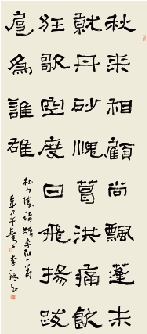 秋来相顧尚飄蓬未
就丹砂愧葛洪痛飲
狂歌空度日飛揚跋
扈為誰雄
杜甫詩贈李白